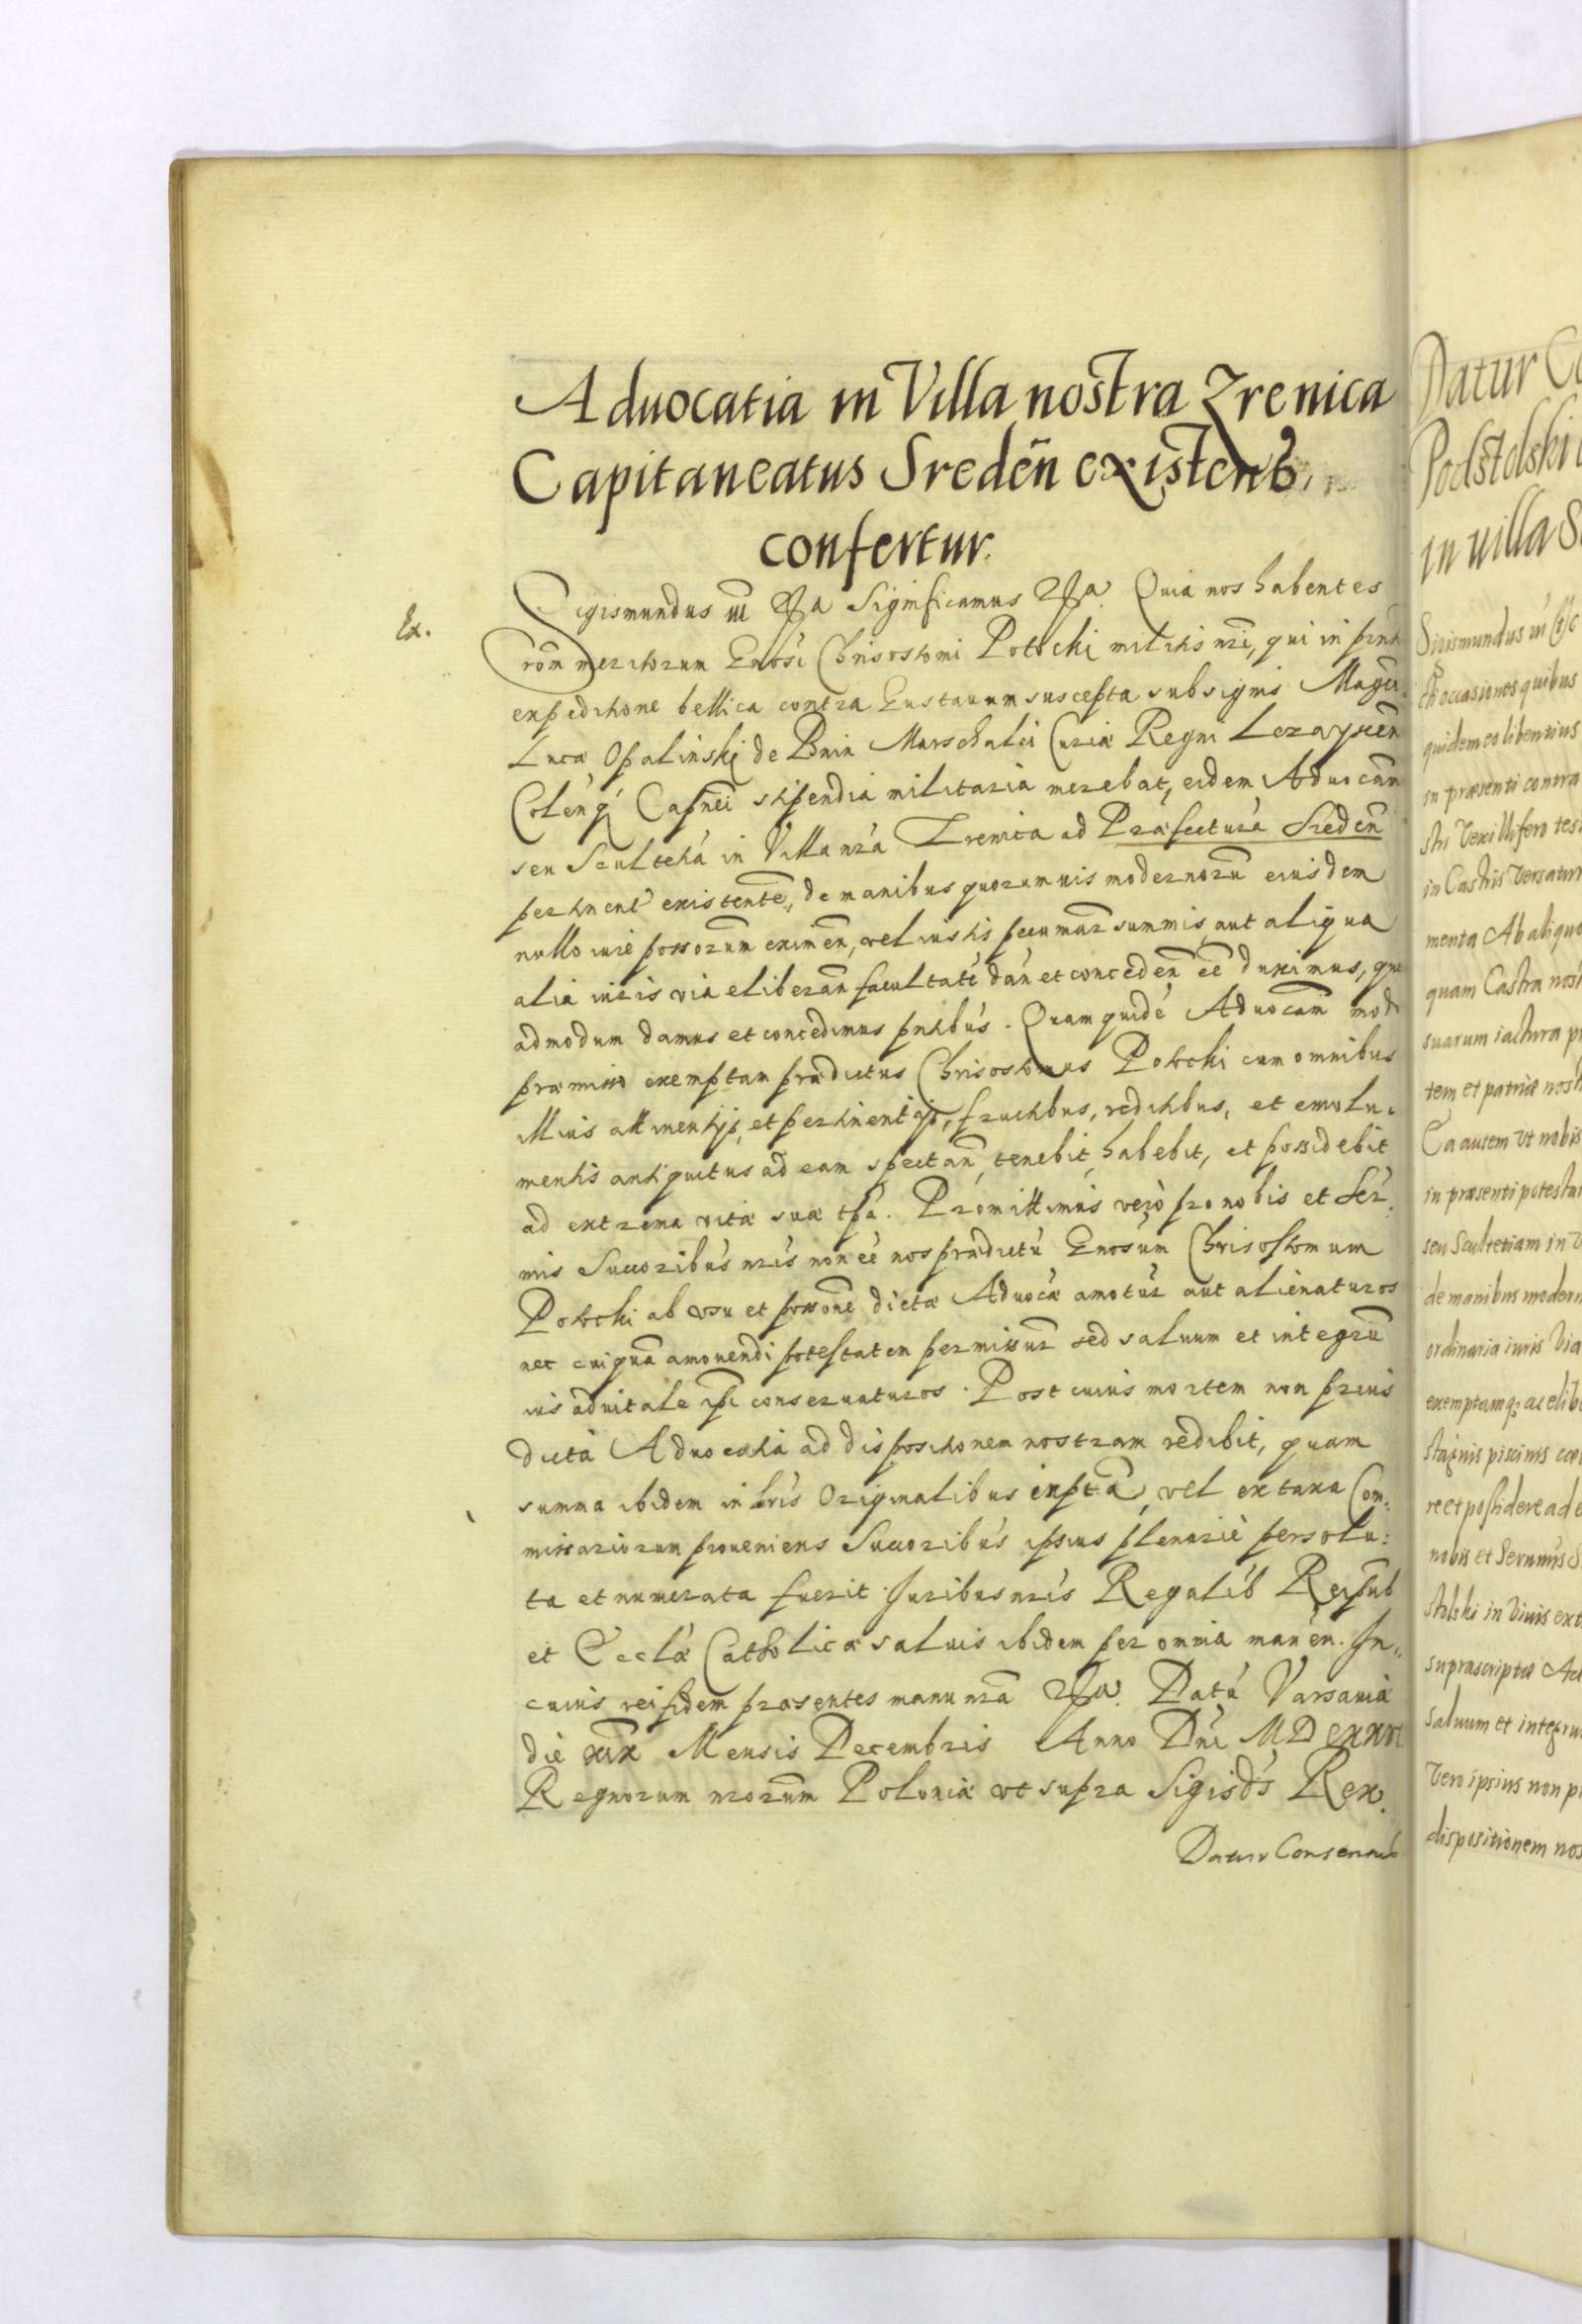 Aduocatia in Villa nostra Zrenica
Capitaneatus Sredeñ existens
confertur.
Ex.
Sigismundus III Significamus Quia nos habentes
rõm meritorum Gnosi Chrisostomi Potocki militis nri, qui in
expeditione bellica contra Gustauum suscepta sub signis Magci
Lucæ Opalinski de Bnin Marschalci Curiæ Regni Lezaysceñ
Coleñq Capnei stipendia militaria merebat, eidem Aduocam
seu Scultetiá in Villa nrá Zrenica ad Præfecturá Sredeñ
pertinent existente, de manibus quorumuis modernorũ eiusdem
nullo iure possorum eximeñ, vel iustis pecuniar summis aut aliqua
alia iuris via eliberañ facultaté dáñ et concedeñ eẽ duximus, que
admodum damus et concedimus pntibus. Quam quidé Aduocam modo
præmisso exemptam prædictus Chrisostomus Potocki cum omnibus
illius attinentijs, et pertinentijs, fructibus, reditibus, et emolu-
mentis antiquitus ad eam spectañ, tenebit, habebit, et possidebit
ad extrema vitæ suæ tpa. Promittimus verò pro nobis et Ser:
mis Succoribus nris non eẽ nos prædictũ Gnosum Chrisostomum
Potocki ab vsu et possone dictæ Aduocæ amotur aut alienaturos
nec cuiquã amouendi potestatem permissur sed saluum et integrũ
ius aduitale ipsi conseruaturos. Post cuius mortem non prius
dicta Aduocatia ad dispositionem nostram redibit, quam
summa ibidem in lris Originalibus inscta, vel ex taxa Com:
missariorum proueniens Succoribus ipsius plenariè persolu:
ta et numerata fuerit. Juribus nris Regalib Reipub
et Ecclæ Catholicæ saluis ibidem per omnia maneñ. In
cuius rei fidem præsentes manu nra Datũ Varsauiæ
die xix Mensis Decembris Anno Dni MDCXXVI
Regnorum nrorum Poloniæ vt supra Sigisds Rex.
Datur Consensus
Datur
Podstolski
in villa
Sigismundus III
occasiones quibus
quidem eo libentius
in præsenti contra
stri Vexillifero
in Castris versatur
menta Ab aliquo
quam Castra
suarum iactura
tem et patriæ
Ea autem vt nobis
in præsenti
seu Scultetiam in
de manibus
ordinaria iuris via
exemptamq; ac
stagnis piscinis
re et possidere ad
nobis et
stolski in viuis
suprascriptæ
saluum et
vero ipsius non
dispositionem